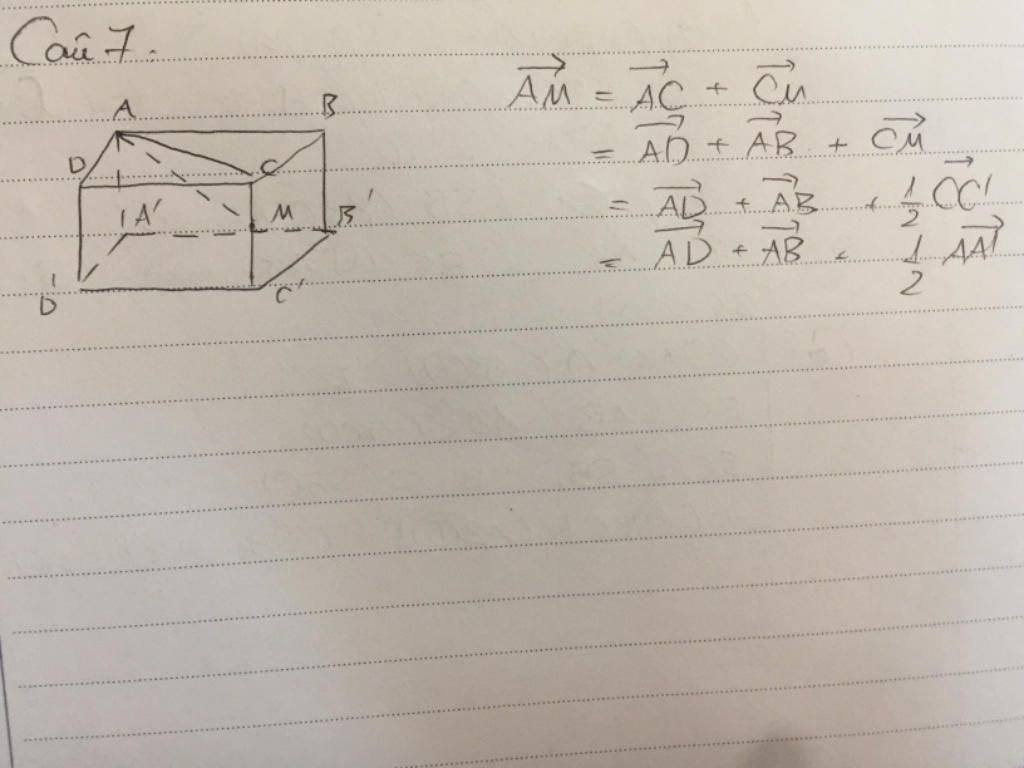 Câu 7.
A
B
D
C
A'
M
B'
D'
C'
$\overrightarrow{AM} = \overrightarrow{AC} + \overrightarrow{CM}$
$= \overrightarrow{AD} + \overrightarrow{AB} + \overrightarrow{CM}$
$= \overrightarrow{AD} + \overrightarrow{AB} + \frac{1}{2} \overrightarrow{CC'}$
$= \overrightarrow{AD} + \overrightarrow{AB} + \frac{1}{2} \overrightarrow{AA'}$